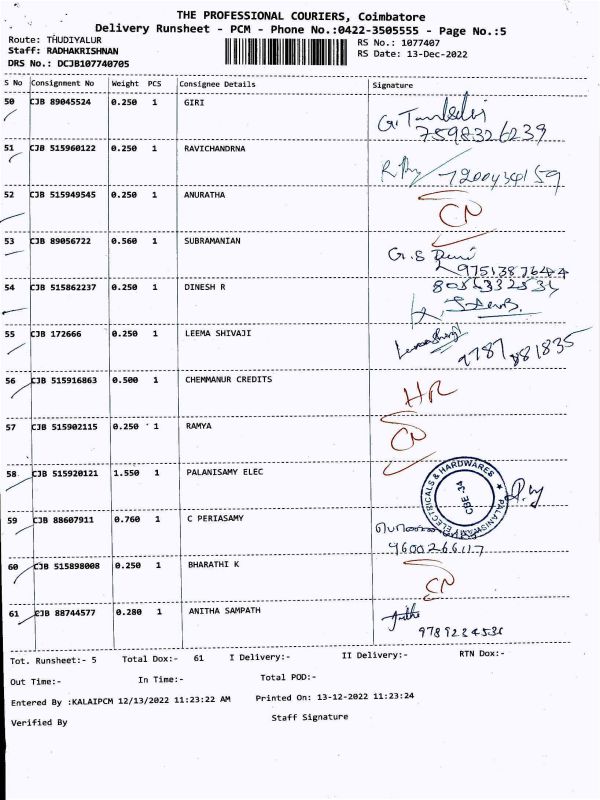 THE PROFESSIONAL COURIERS, Coimbatore
Delivery Runsheet - PCM - Phone No.:0422-3505555 - Page No.:5
Route: THUDIYALUR
Staff: RADHAKRISHNAN
DRS No.: DCJB107740705
RS No.: 1077407
RS Date: 13-Dec-2022
S No Consignment No Weight PCS Consignee Details Signature
50 CJB 89045524 0.250 1 GIRI
7598326239
51 CJB 515960122 0.250 1 RAVICHANDRNA
7200434159
52 CJB 515949545 0.250 1 ANURATHA CN
53 CJB 89056722 0.560 1 SUBRAMANIAN
9751387644
54 CJB 515862237 0.250 1 DINESH R
55 CJB 172666 0.250 1 LEEMA SHIVAJI
9787881835
56 CJB 515916863 0.500 1 CHEMMANUR CREDITS HR
57 CJB 515902115 0.250 1 RAMYA CN
58 CJB 515920121 1.550 1 PALANISAMY ELEC
PALANISWAMY ELECTRICALS & HARDWARES
CBE-34
59 CJB 88607911 0.760 1 C PERIASAMY
9600266117
60 CJB 515898008 0.250 1 BHARATHI K CN
61 CJB 88744577 0.280 1 ANITHA SAMPATH
9789224536
Tot. Runsheet:- 5 Total Dox:- 61 I Delivery:- II Delivery:- RTN Dox:-
Out Time:- In Time:- Total POD:-
Entered By :KALAIPCM 12/13/2022 11:23:22 AM Printed On: 13-12-2022 11:23:24
Verified By Staff Signature